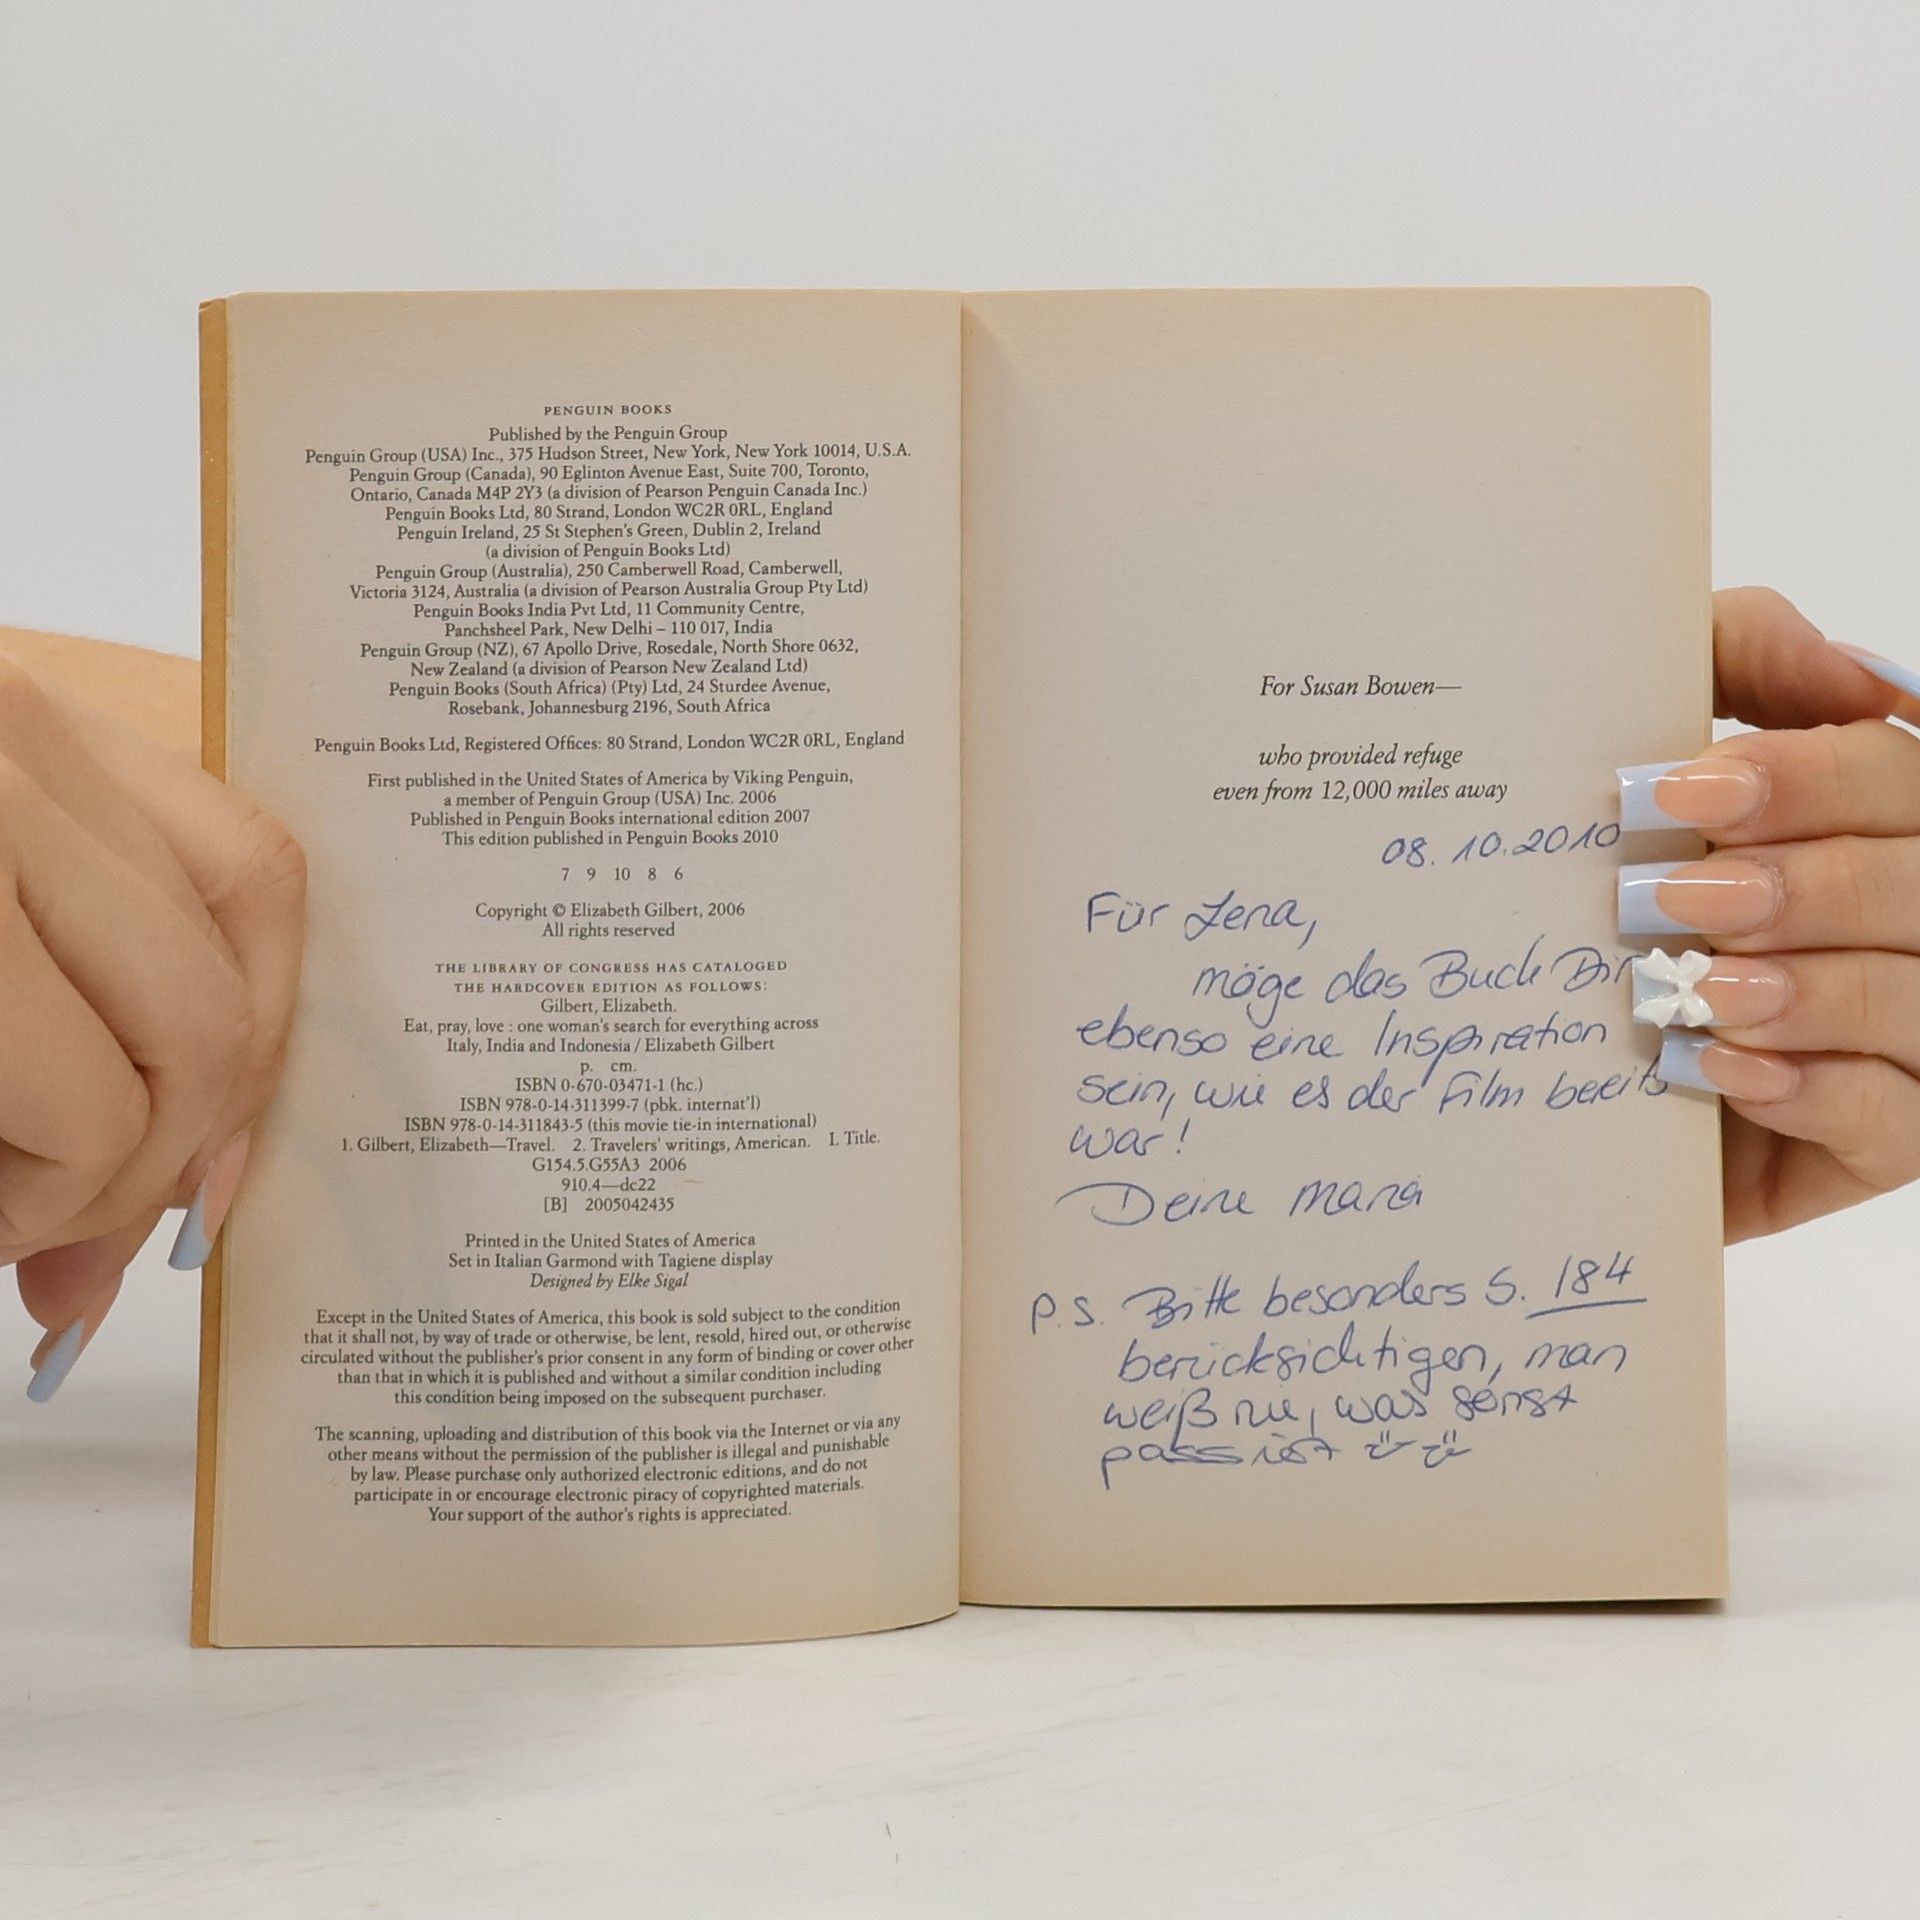 PENGUIN BOOKS
Published by the Penguin Group
Penguin Group (USA) Inc., 375 Hudson Street, New York, New York 10014, U.S.A.
Penguin Group (Canada), 90 Eglinton Avenue East, Suite 700, Toronto,
Ontario, Canada M4P 2Y3 (a division of Pearson Penguin Canada Inc.)
Penguin Books Ltd, 80 Strand, London WC2R 0RL, England
Penguin Ireland, 25 St Stephen's Green, Dublin 2, Ireland
(a division of Penguin Books Ltd)
Penguin Group (Australia), 250 Camberwell Road, Camberwell,
Victoria 3124, Australia (a division of Pearson Australia Group Pty Ltd)
Penguin Books India Pvt Ltd, 11 Community Centre,
Panchsheel Park, New Delhi – 110 017, India
Penguin Group (NZ), 67 Apollo Drive, Rosedale, North Shore 0632,
New Zealand (a division of Pearson New Zealand Ltd)
Penguin Books (South Africa) (Pty) Ltd, 24 Sturdee Avenue,
Rosebank, Johannesburg 2196, South Africa
Penguin Books Ltd, Registered Offices: 80 Strand, London WC2R 0RL, England
First published in the United States of America by Viking Penguin,
a member of Penguin Group (USA) Inc. 2006
Published in Penguin Books international edition 2007
This edition published in Penguin Books 2010
7 9 10 8 6
Copyright © Elizabeth Gilbert, 2006
All rights reserved
THE LIBRARY OF CONGRESS HAS CATALOGED
THE HARDCOVER EDITION AS FOLLOWS:
Gilbert, Elizabeth.
Eat, pray, love : one woman's search for everything across
Italy, India and Indonesia / Elizabeth Gilbert
p. cm.
ISBN 0-670-03471-1 (hc.)
ISBN 978-0-14-311399-7 (pbk. internat'l)
ISBN 978-0-14-311843-5 (this movie tie-in international)
1. Gilbert, Elizabeth—Travel. 2. Travelers' writings, American. I. Title.
G154.5.G55A3 2006
910.4—dc22
[B] 2005042435
Printed in the United States of America
Set in Italian Garmond with Tagiene display
Designed by Elke Sigal
Except in the United States of America, this book is sold subject to the condition
that it shall not, by way of trade or otherwise, be lent, resold, hired out, or otherwise
circulated without the publisher's prior consent in any form of binding or cover other
than that in which it is published and without a similar condition including
this condition being imposed on the subsequent purchaser.
The scanning, uploading and distribution of this book via the Internet or via any
other means without the permission of the publisher is illegal and punishable
by law. Please purchase only authorized electronic editions, and do not
participate in or encourage electronic piracy of copyrighted materials.
Your support of the author's rights is appreciated.
For Susan Bowen—
who provided refuge
even from 12,000 miles away
08.10.2010
Für Lena,
möge das Buch Dir
ebenso eine Inspiration
sein, wie es der Film bereits
war!
Deine
P.S. Bitte besonders S. 184
berücksichtigen, man
weiß nie, was sonst
passiert